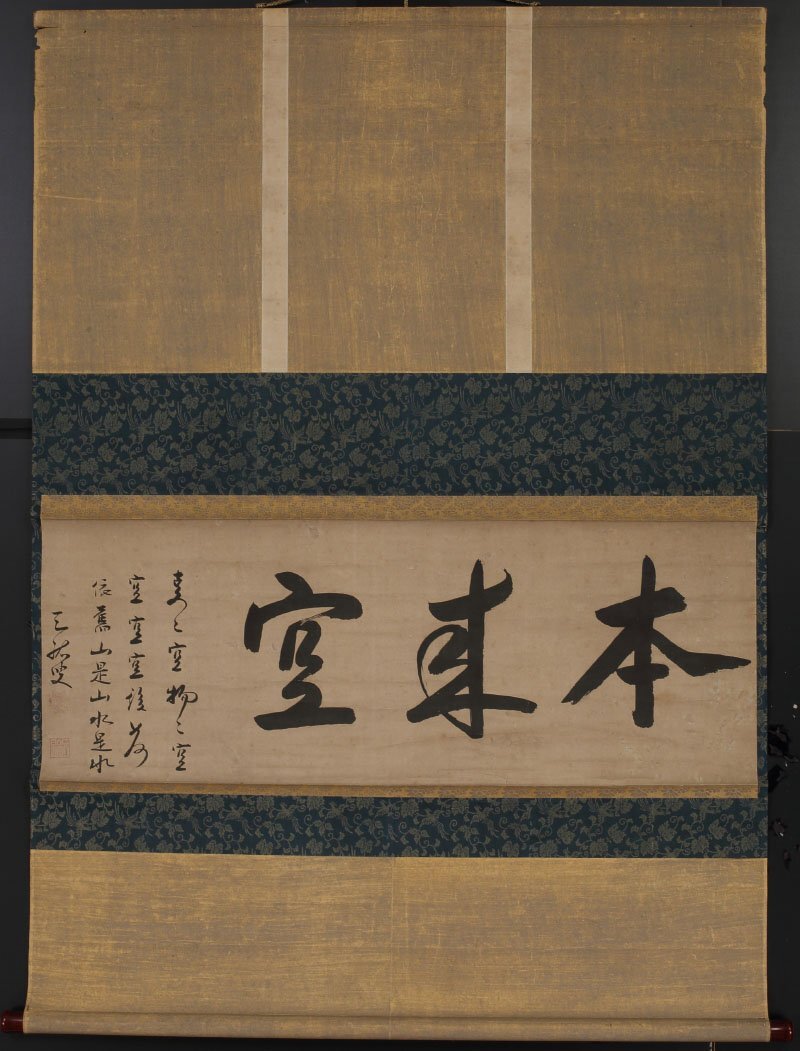 本来空
事々空物々空
空空空後如何
依舊山是山水是水